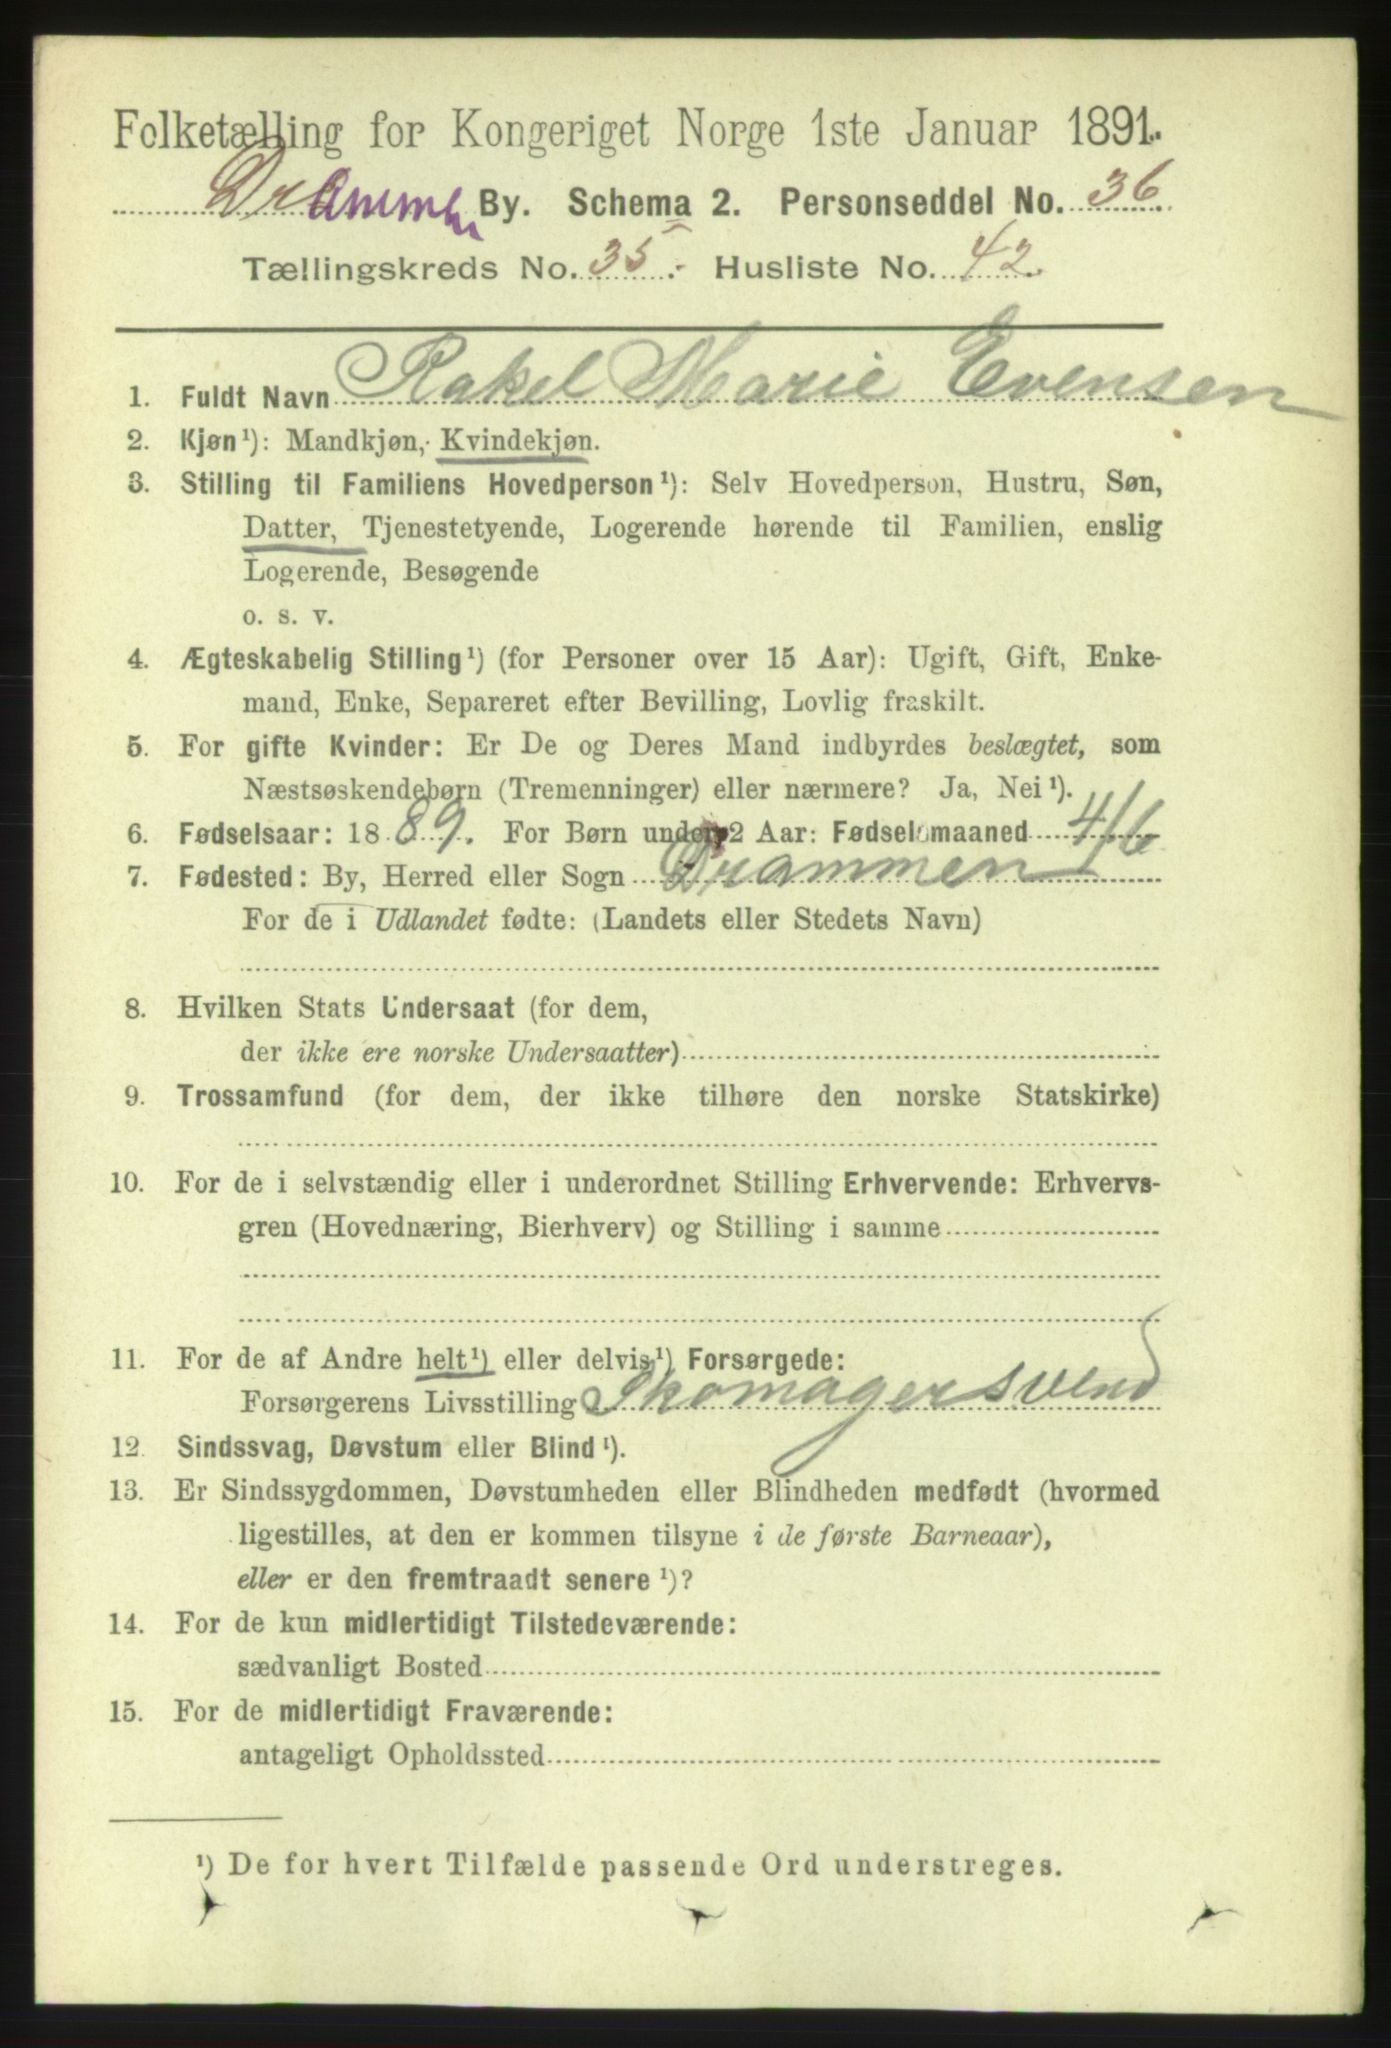 Folketælling for Kongeriget Norge 1ste Januar 1891.
Drammen By. Schema 2. Personseddel No. 36
Tællingskreds No. 35. Husliste No. 42.
1. Fuldt Navn Rakel Marie Evensen
2. Kjøn¹): Mandkjøn, Kvindekjøn.
3. Stilling til Familiens Hovedperson¹): Selv Hovedperson, Hustru, Søn,
Datter, Tjenestetyende, Logerende hørende til Familien, enslig
Logerende, Besøgende
o. s. v.
4. Ægteskabelig Stilling¹) (for Personer over 15 Aar): Ugift, Gift, Enke-
mand, Enke, Separeret efter Bevilling, Lovlig fraskilt.
5. For gifte Kvinder: Er De og Deres Mand indbyrdes beslægtet, som
Næstsøskendebørn (Tremenninger) eller nærmere? Ja, Nei¹).
6. Fødselsaar: 1889. For Børn under 2 Aar: Fødselsmaaned 4/6
7. Fødested: By, Herred eller Sogn Drammen
For de i Udlandet fødte: (Landets eller Stedets Navn)
8. Hvilken Stats Undersaat (for dem,
der ikke ere norske Undersaatter)
9. Trossamfund (for dem, der ikke tilhøre den norske Statskirke)
10. For de i selvstændig eller i underordnet Stilling Erhvervende: Erhvervs-
gren (Hovednæring, Bierhverv) og Stilling i samme
11. For de af Andre helt¹) eller delvis¹) Forsørgede:
Forsørgerens Livsstilling Skomagersvend
12. Sindssvag, Døvstum eller Blind¹).
13. Er Sindssygdommen, Døvstumheden eller Blindheden medfødt (hvormed
ligestilles, at den er kommen tilsyne i de første Barneaar),
eller er den fremtraadt senere¹)?
14. For de kun midlertidigt Tilstedeværende:
sædvanligt Bosted
15. For de midlertidigt Fraværende:
antageligt Opholdssted
¹) De for hvert Tilfælde passende Ord understreges.